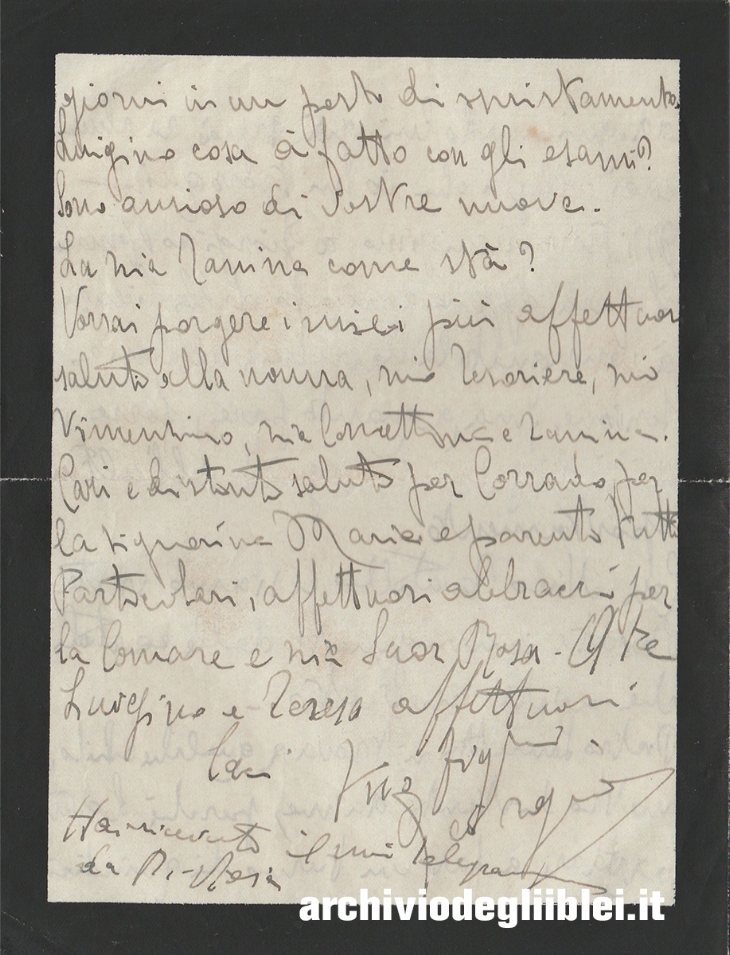 giorni in un posto di smistamento.
Luigino cosa à fatto con gli esami?
Sono ansioso di vostre nuove.
La mia Zanina come stà?
Vorrai porgere i miei più affettuosi
saluti alla nonna, mio Tesoriere, mio
Vincenzino, mia Concettina e Zanina.
Cari e distinti saluti per Corrado per
la signorina Maria e parenti tutti
Particolari, affettuosi abbracci per
la Comare e mia Suor Rosa - A te
Luigino e Teresa affettuosi
baci
Hai ricevuto il mio telegramma
da
archiviodegliiblei.it